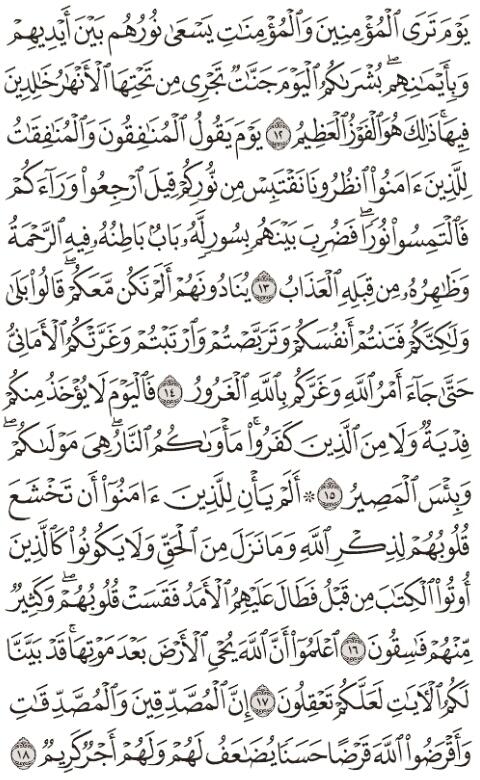 يَوْمَ تَرَى ٱلْمُؤْمِنِينَ وَٱلْمُؤْمِنَٰتِ يَسْعَىٰ نُورُهُم بَيْنَ أَيْدِيهِمْ
وَبِأَيْمَٰنِهِم ۖ بُشْرَىٰكُمُ ٱلْيَوْمَ جَنَّٰتٌ تَجْرِى مِن تَحْتِهَا ٱلْأَنْهَٰرُ خَٰلِدِينَ
فِيهَا ۚ ذَٰلِكَ هُوَ ٱلْفَوْزُ ٱلْعَظِيمُ ١٢ يَوْمَ يَقُولُ ٱلْمُنَٰفِقُونَ وَٱلْمُنَٰفِقَٰتُ
لِلَّذِينَ ءَامَنُوا۟ ٱنظُرُونَا نَقْتَبِسْ مِن نُّورِكُمْ قِيلَ ٱرْجِعُوا۟ وَرَآءَكُمْ
فَٱلْتَمِسُوا۟ نُورًا ۖ فَضُرِبَ بَيْنَهُم بِسُورٍ لَّهُۥ بَابٌۢ بَاطِنُهُۥ فِيهِ ٱلرَّحْمَةُ
وَظَٰهِرُهُۥ مِن قِبَلِهِ ٱلْعَذَابُ ١٣ يُنَادُونَهُمْ أَلَمْ نَكُن مَّعَكُمْ ۖ قَالُوا۟ بَلَىٰ
وَلَٰكِنَّكُمْ فَتَنتُمْ أَنفُسَكُمْ وَتَرَبَّصْتُمْ وَٱرْتَبْتُمْ وَغَرَّتْكُمُ ٱلْأَمَانِىُّ
حَتَّىٰ جَآءَ أَمْرُ ٱللَّهِ وَغَرَّكُم بِٱللَّهِ ٱلْغَرُورُ ١٤ فَٱلْيَوْمَ لَا يُؤْخَذُ مِنكُمْ
فِدْيَةٌ وَلَا مِنَ ٱلَّذِينَ كَفَرُوا۟ ۚ مَأْوَىٰكُمُ ٱلنَّارُ ۖ هِىَ مَوْلَىٰكُمْ ۖ
وَبِئْسَ ٱلْمَصِيرُ ١٥ ۞ أَلَمْ يَأْنِ لِلَّذِينَ ءَامَنُوٓا۟ أَن تَخْشَعَ
قُلُوبُهُمْ لِذِكْرِ ٱللَّهِ وَمَا نَزَلَ مِنَ ٱلْحَقِّ وَلَا يَكُونُوا۟ كَٱلَّذِينَ
أُوتُوا۟ ٱلْكِتَٰبَ مِن قَبْلُ فَطَالَ عَلَيْهِمُ ٱلْأَمَدُ فَقَسَتْ قُلُوبُهُمْ ۖ وَكَثِيرٌ
مِّنْهُمْ فَٰسِقُونَ ١٦ ٱعْلَمُوٓا۟ أَنَّ ٱللَّهَ يُحْىِ ٱلْأَرْضَ بَعْدَ مَوْتِهَا ۚ قَدْ بَيَّنَّا
لَكُمُ ٱلْـَٔايَٰتِ لَعَلَّكُمْ تَعْقِلُونَ ١٧ إِنَّ ٱلْمُصَّدِّقِينَ وَٱلْمُصَّدِّقَٰتِ
وَأَقْرَضُوا۟ ٱللَّهَ قَرْضًا حَسَنًا يُضَٰعَفُ لَهُمْ وَلَهُمْ أَجْرٌ كَرِيمٌ ١٨